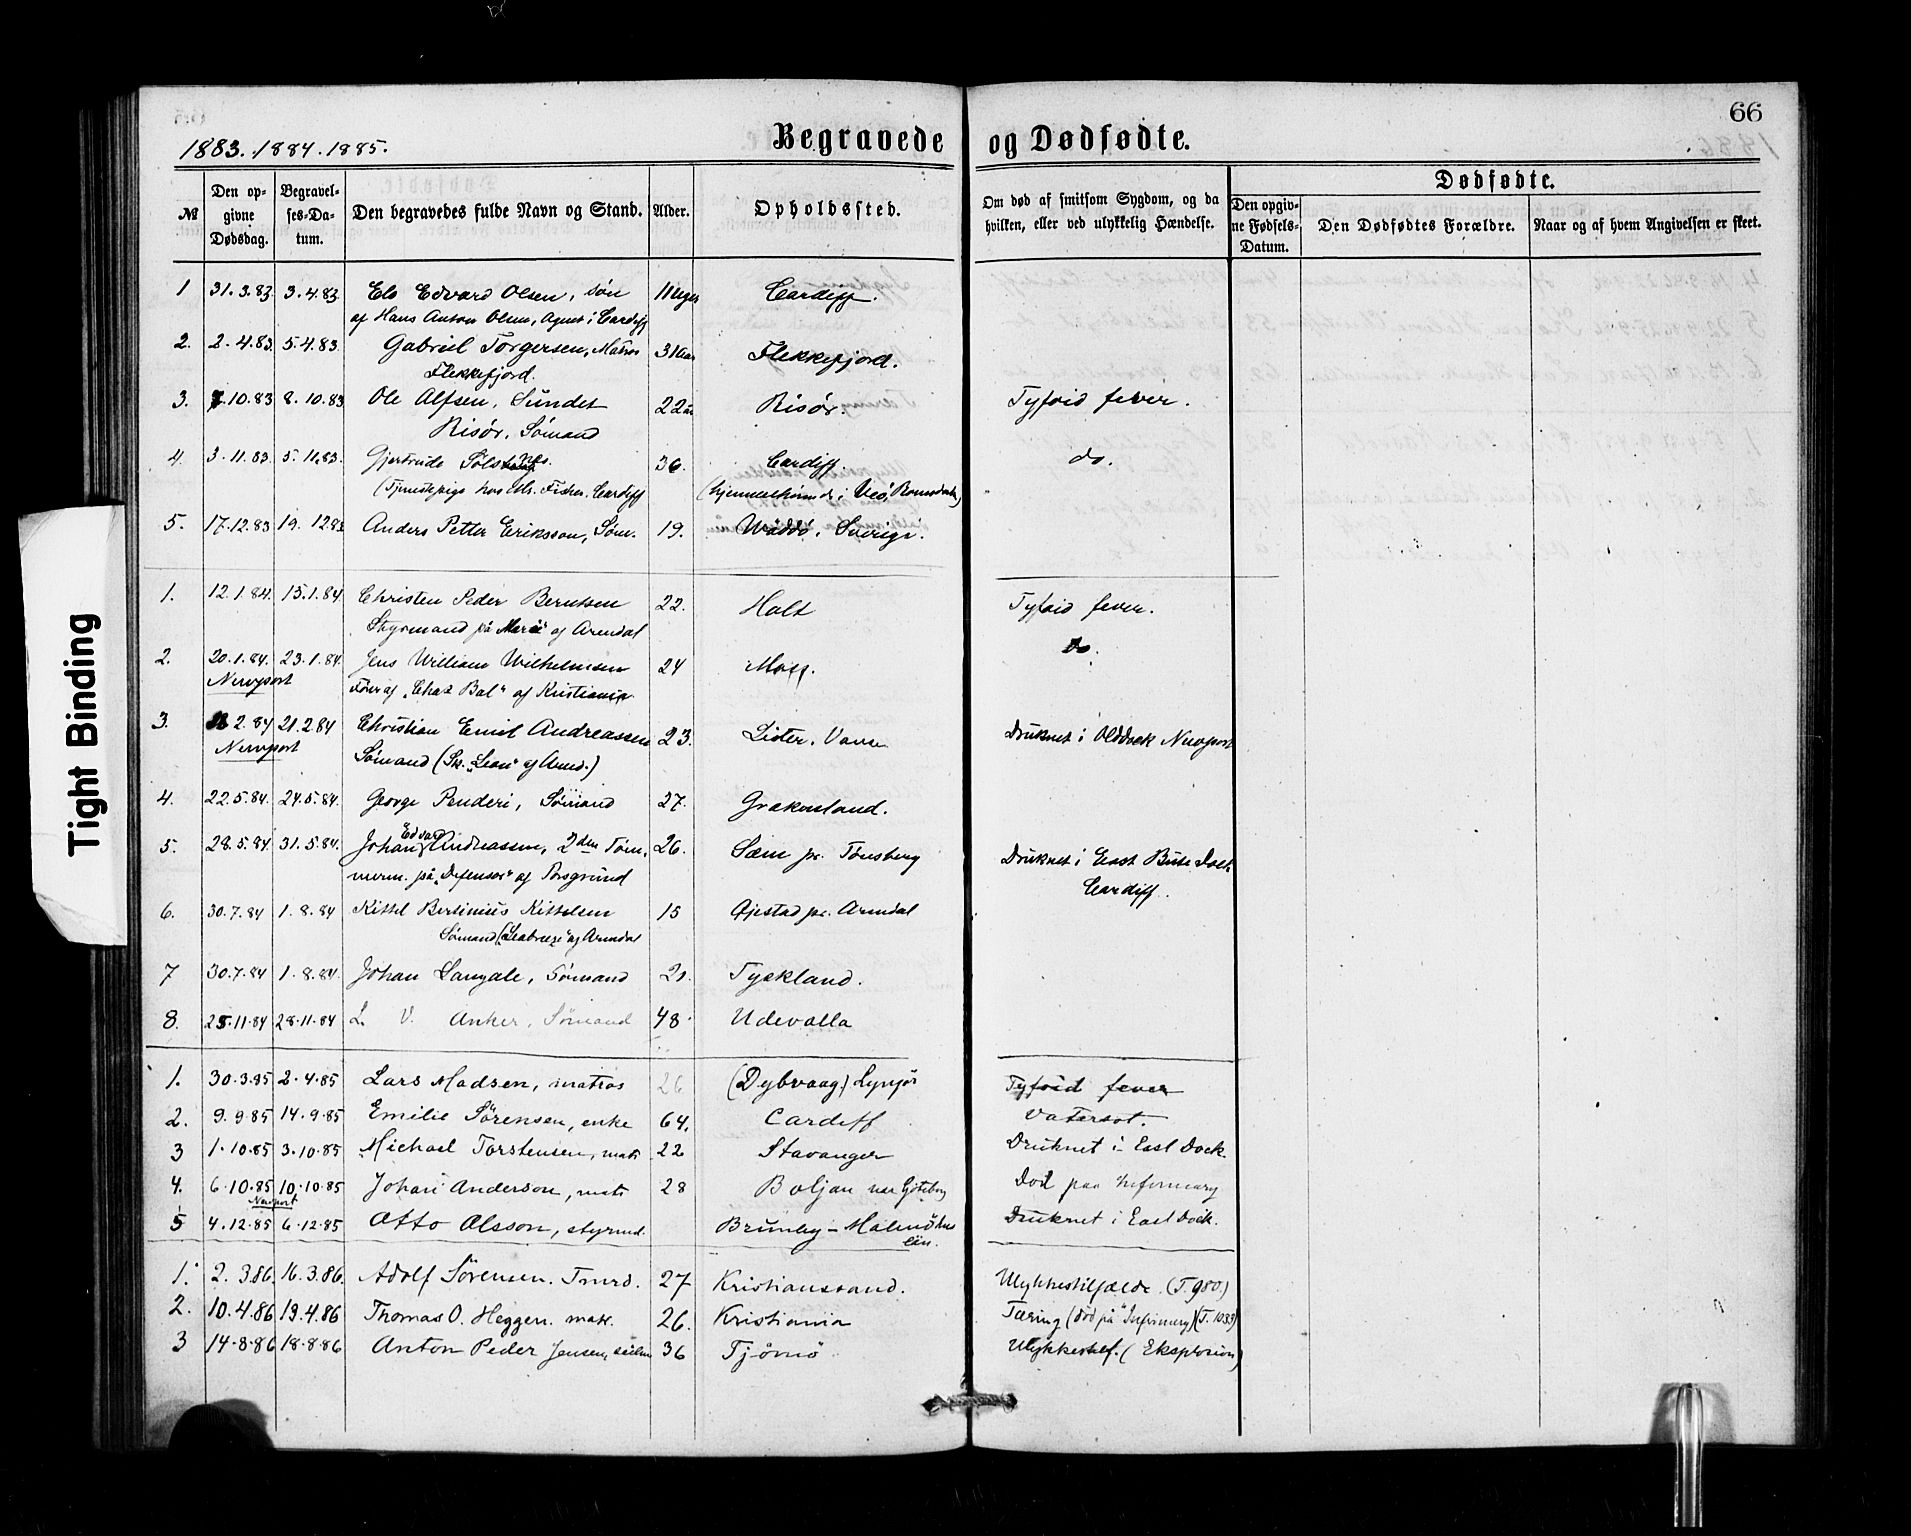 66
1883. 1884. 1885.
Begravede og Dødfødte.
№
Den opgivne Dødsdag.
Begravelses-Datum.
Den begravedes fulde Navn og Stand.
Alder.
Opholdssted.
Om død af smitsom Sygdom, og da hvilken, eller ved ulykkelig Hændelse.
Dødfødte.
Den opgivne Fødsels-Datum.
Den Dødfødtes Forældre.
Naar og af hvem Angivelsen er skeet.
1 31.3.83 3.4.83 Edvard Olsen, søn Cardiff.
af Hans Anton Olsen, Agent i Cardiff
2. 2.4.83 5.4.83. Gabriel Torgersen, Matros 31 Flekkefjord.
Flekkefjord.
3. 7.10.83 8.10.83 Ole Alfsen, Sundet 22 Risør. Tyfoid fever.
Risør, Sömand
4. 3.11.83. 5.11.83. Gjertrude 36 Cardiff. do.
(Tjenestepige hos Cardiff (hjemmehörende i Veö, Romsdalen)
5. 17.12.83 19.12.83 Anders Petter Eriksson, Söm. 19. Wäddö, Sverige.
1. 12.1.84. 15.1.84 Christen Peder Berntsen 22. Holt Tyfoid fever.
Styrmand på "Maria" af Arendal
2. 20.1.84. 23.1.84. Jens William Wilhelmsen 24 Moss. do.
Newport
af Kristiania
3. 2.84 21.2.84 Christian Emil Andreassen 23. Lister, Vanse Druknet i Olddock Newport
Newport
Sömand (Sk. "Leon" af Arend.)
4. 22.5.84. 24.5.84. George Penderi, Sömand 27. Grækenland.
Edvard
5. 28.5.84 31.5.84. Johan Andreassen, 2den Töm. 26. Sæm pr. Tönsberg Druknet i East Bute Dock
merm. på "Defensor" af Porsgrund Cardiff.
6. 30.7.84 1.8.84 Kittel Bertinius Kittelsen 15 Öjestad pr. Arendal
Sömand ("Seabreeze" af Arendal
7 30.7.84 1.8.84. Johan Langale, Sömand Tyskland.
8. 25.11.84 28.11.84 L. V. Anker, Sömand 48. Udevalla
1. 30.3.85 2.4.85 Lars Madsen, matros 26 (Dybvaag) Lyngör Tyfoid fever
2. 9.9.85 14.9.85 Emilie Sörensen, enke 64. Cardiff Vatersot.
3 1.10.85 3.10.85 Michael Torstensen, mats 22 Stavanger Druknet i East Dock.
4. 6.10.85 10.10.85 Johan Anderson, mats 28 Boljan nær Göteborg Död paa Infirmary
Newport
5 4.12.85 6.12.85 Otto Olsson, styrmd. Brunby - Malmöhus Druknet i East Dock.
län.
1. 2.3.86. 16.3.86. Adolf Sörensen. Tmrd. 27 Kristianssand. Ulykkestilfælde. (T. 980.)
2. 10.4.86 13.4.86 Thomas O. Heggen. matr. 26. Kristiania Tæring (död på "Infirmary) (T. 1033)
3 14.8.86 18.8.86 Anton Peder Jensen, 36 Tjömö Ulykkestilf. (Eksplosion)
Tight Binding